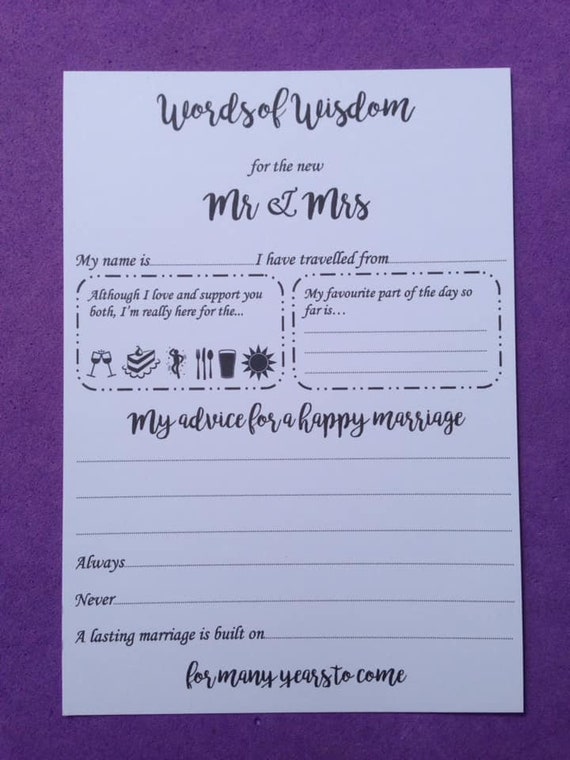 Words of Wisdom
for the new
Mr & Mrs
My name is I have travelled from
Although I love and support you
both, I'm really here for the...
My favourite part of the day so
far is...
My advice for a happy marriage
Always
Never
A lasting marriage is built on
for many years to come